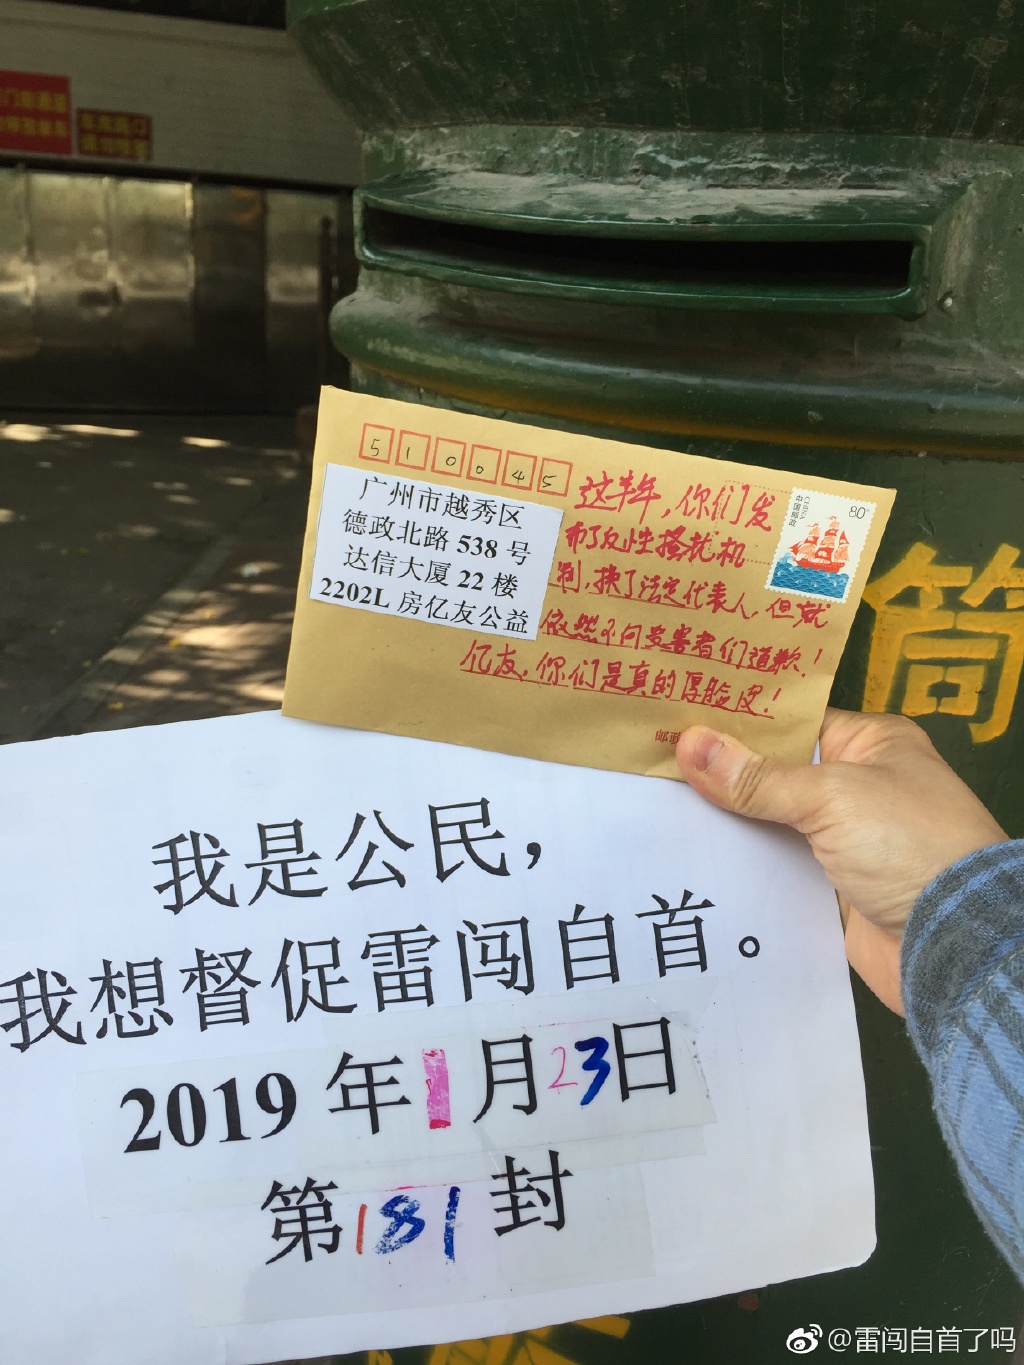 510045
广州市越秀区
德政北路 538 号
达信大厦 22 楼
2202L 房亿友公益
这半年，你们发
布了反性骚扰机
制，换了法定代表人，但就
依然不向受害者们道歉！
亿友，你们是真的厚脸皮！
80分
中国邮政
CHINA
邮政
筒
我是公民，
我想督促雷闯自首。
2019 年1月23日
第181封
@雷闯自首了吗